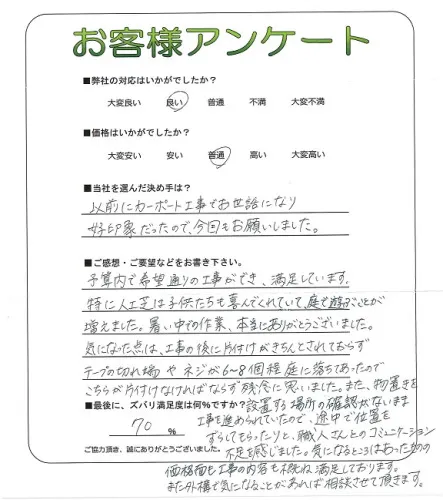 お客様アンケート
■弊社の対応はいかがでしたか?
大変良い 良い 普通 不満 大変不満
■価格はいかがでしたか?
大変安い 安い 普通 高い 大変高い
■当社を選んだ決め手は?
以前にカーポート工事でお世話になり
好印象だったので、今回もお願いしました。
■ご感想・ご要望などをお書き下さい。
予算内で希望通りの工事ができ、満足しています。
特に人工芝は子供たちも喜んでくれていて、庭で遊ぶことが
増えました。暑い中での作業、本当にありがとうございました。
気になった点は、工事の後に片付けがきちんとされておらず
テープの切れ端やネジが6~8個程庭に落ちてあったので
こちらが片付けなければならず残念に思いました。また、物置きを
■最後に、ズバリ満足度は何%ですか?
設置する場所の確認がないまま
工事を進められていたので、途中で位置を
70 %
ずらしてもらったりと、職人さんとのコミュニケーション
不足を感じました。気になるところはあったものの
ご協力頂き、誠にありがとうございました。
価格面も工事の内容も概ね満足しております。
また外構で気になることがあれば相談させて頂きます。